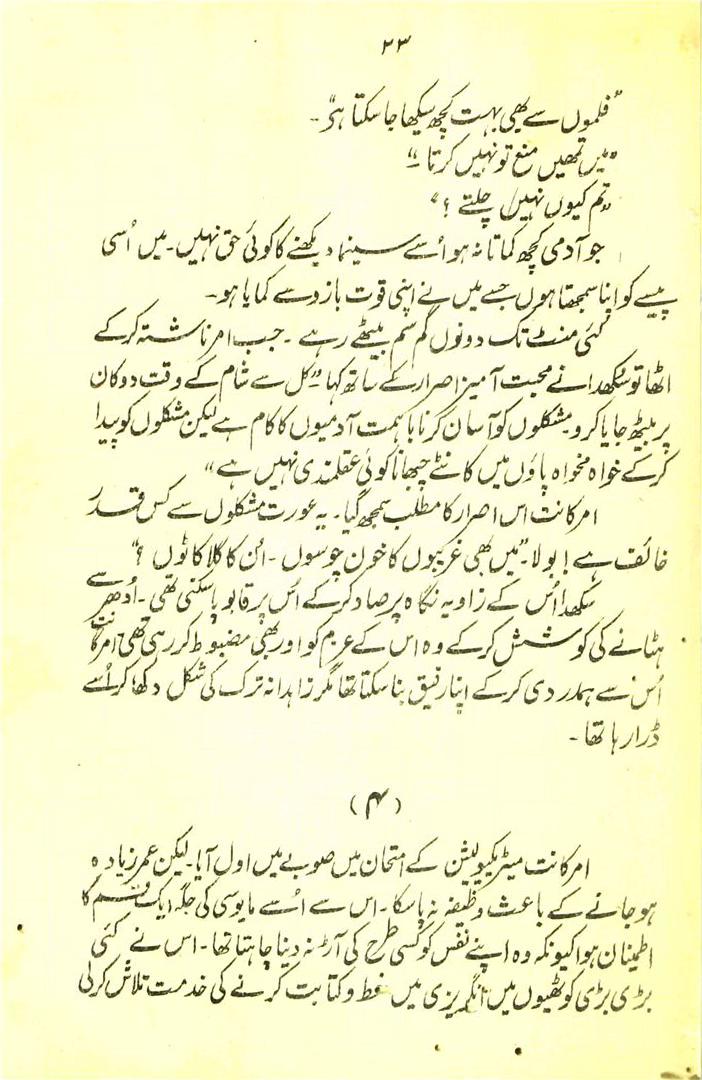 ۲۳
"فلموں سے بھی بہت کچھ سیکھا جا سکتا ہے"۔
"میں تمھیں منع تو نہیں کرتا ۔"
"تم کیوں نہیں چلتے ؟"
جو آدمی کچھ کماتا نہ ہو اُسے سینما دیکھنے کا کوئی حق نہیں۔ میں اُسی
پیسے کو اپنا سمجھتا ہوں جسے میں نے اپنی قوت بازو سے کمایا ہو۔
کئی منٹ تک دونوں گم سم بیٹھے رہے ۔ جب امر ناشتہ کرکے
اٹھا تو سکھدا نے محبت آمیز اصرار کے ساتھ کہا "کل سے شام کے وقت دوکان
پر بیٹھ جایا کرو۔ مشکلوں کو آسان کرنا باہمت آدمیوں کا کام ہے لیکن مشکلوں کو پیدا
کر کے خواہ مخواہ پاؤں میں کانٹے چبھانا کوئی عقلمندی نہیں ہے"
امرکانت اس اصرار کا مطلب سمجھ گیا۔ یہ عورت مشکلوں سے کس قدر
خائف ہے! بولا۔ "میں بھی غریبوں کا خون چوسوں ۔ اُن کا گلا کاٹوں ؟"
سکھدا اُس کے زاویہ نگاہ پر صاد کر کے اُس پر قابو پا سکتی تھی ۔ اُدھر سے
ہٹانے کی کوشش کر کے وہ اس کے عزیم کو اور بھی مضبوط کر رہی تھی۔ امرکانت
اُس سے ہمدردی کر کے اپنا رفیق بنا سکتا تھا مگر زاہدانہ ترک کی شکل دکھا کر اُسے
ڈرا رہا تھا ۔
(۴)
امرکانت میٹریکیولیشن کے امتحان میں صوبے میں اول آیا۔ لیکن عمر زیادہ
ہو جانے کے باعث وظیفہ نہ پا سکا ۔ اس سے اُسے مایوسی کی جگہ ایک قسم کا
اطمینان ہوا کیونکہ وہ اپنے نفس کو کسی طرح کی آڑ نہ دینا چاہتا تھا ۔ اس نے کئی
بڑی بڑی کوٹھیوں میں انگریزی میں خط و کتابت کرنے کی خدمت تلاش کر لی